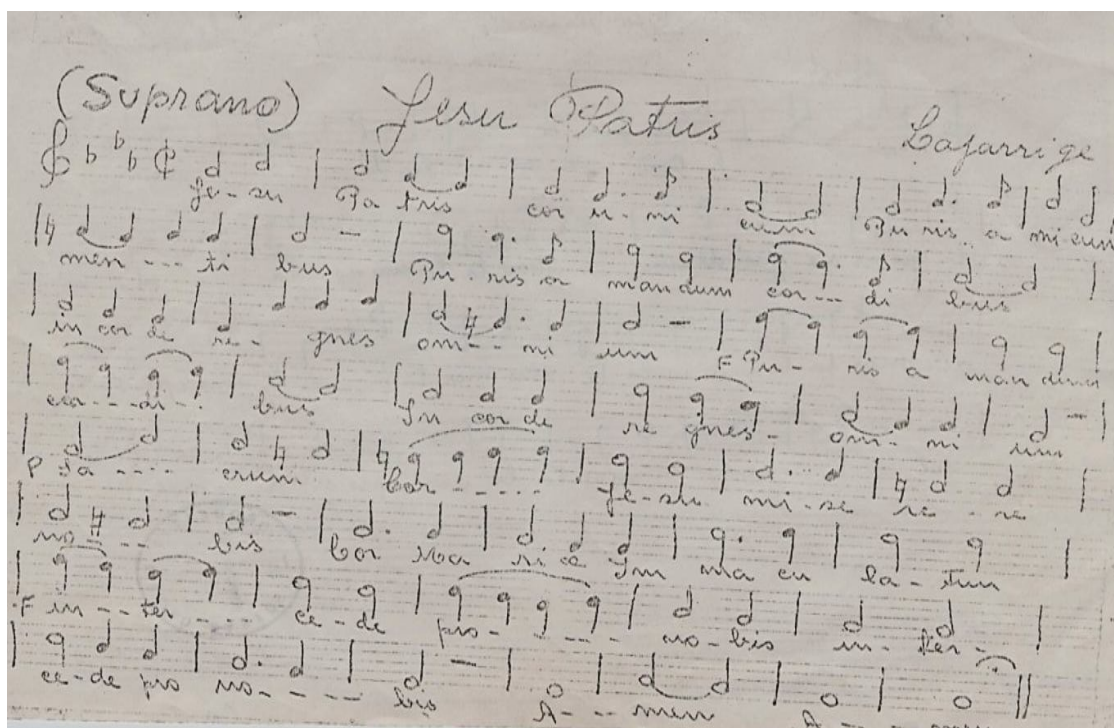 (Soprano) Jesu Patris Lafarrige
Je-su Pa tris cor u-ni cum Pu ris a mi cum
men --- ti bus Pu-ris a mandum cor --- di bus
in cor de re- gnes om-- ni um F Pu- ris a man dum
cor---di-. bus In cor de re gnes- om-- ni um
P Sa ---- crum Cor ----- Je-su mi-se re - re
no --- bis Cor Ma ri ae Im ma cu la-tum
F in---ter---- ce-de pro------ no-bis in-ter-
ce-de pro no----- bis A--- men A---